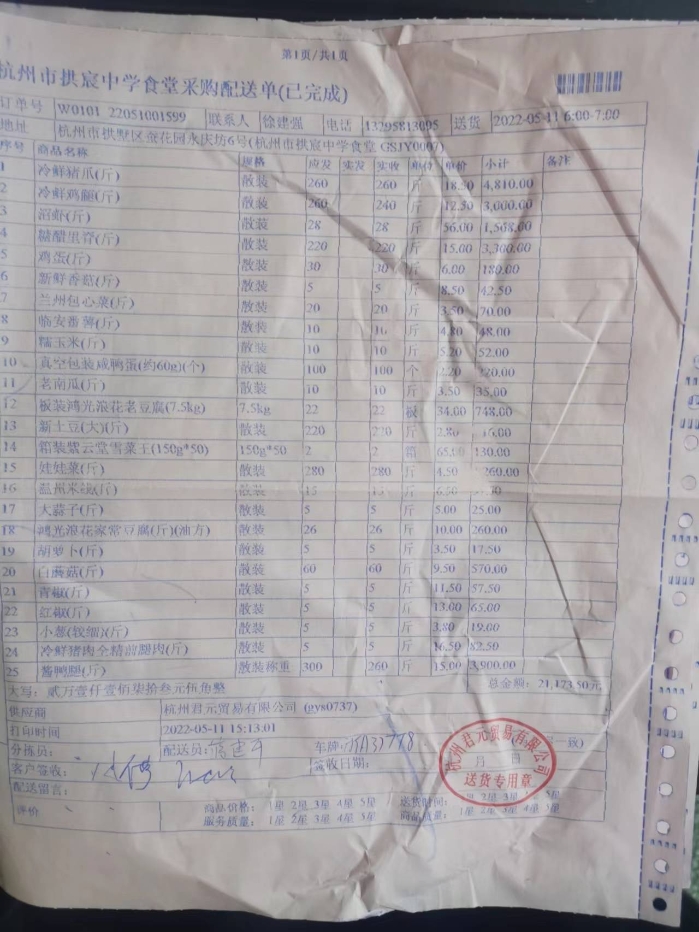 第1页/共1页
杭州市拱宸中学食堂采购配送单(已完成)
订单号 W0101_22051001599 联系人 徐建强 电话 13295813095 送货 2022-05-11 6:00-7:00
地址 杭州市拱墅区金花园永庆坊6号(杭州市拱宸中学食堂 GSJY0007)
序号 商品名称 规格 应发 实发 实收 单位 单价 小计 备注
1 冷鲜猪爪(斤) 散装 260 260 斤 18.50 4,810.00
2 冷鲜鸡腿(斤) 散装 260 240 斤 12.50 3,000.00
3 沼虾(斤) 散装 28 28 斤 56.00 1,568.00
4 糖醋里脊(斤) 散装 220 220 斤 15.00 3,300.00
5 鸡蛋(斤) 散装 30 30 斤 6.00 180.00
6 新鲜香菇(斤) 散装 5 5 斤 8.50 42.50
7 兰州包心菜(斤) 散装 20 20 斤 3.50 70.00
8 临安番薯(斤) 散装 10 10 斤 4.80 48.00
9 糯玉米(斤) 散装 10 10 斤 5.20 52.00
10 真空包装咸鸭蛋(约60g)(个) 散装 100 100 个 2.20 220.00
11 老南瓜(斤) 散装 10 10 斤 3.50 35.00
12 板装鸿光浪花老豆腐(7.5kg) 7.5kg 22 22 板 34.00 748.00
13 新土豆(大)(斤) 散装 220 220 斤 2.80
14 箱装紫云堂雪菜王(150g*50) 150g*50 2 2 箱 65.00 130.00
15 娃娃菜(斤) 散装 280 280 斤 4.50 1,260.00
16 温州米面(斤) 散装 15 15 斤 6.50
17 大蒜子(斤) 散装 5 5 斤 5.00 25.00
18 鸿光浪花家常豆腐(斤)(油方) 散装 26 26 斤 10.00 260.00
19 胡萝卜(斤) 散装 5 5 斤 3.50 17.50
20 白蘑菇(斤) 散装 60 60 斤 9.50 570.00
21 青椒(斤) 散装 5 5 斤 11.50 57.50
22 红椒(斤) 散装 5 5 斤 13.00 65.00
23 小葱(较细)(斤) 散装 5 5 斤 3.80 19.00
24 冷鲜猪肉全精前腿肉(斤) 散装 5 5 斤 16.50 82.50
25 酱鸭腿(斤) 散装称重 300 260 斤 15.00 3,900.00
大写: 贰万壹仟壹佰柒拾叁元伍角整 总金额: 21,173.50元
供应商 杭州君元贸易有限公司 (gys0737)
打印时间 2022-05-11 15:13:01
分拣员: 配送员: 车牌: 一致)
客户签收: 签收日期: 月 日
杭州君元贸易有限公司
送货专用章
配送留言:
评价 商品价格: 1星 2星 3星 4星 5星 送货时间: 1星 2星 3星 4星 5星
服务质量: 1星 2星 3星 4星 5星 商品质量: 1星 2星 3星 4星 5星